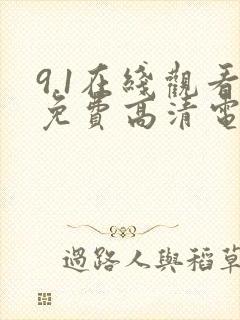 9.1在綫觀看
免費高清電
過路人與稻草